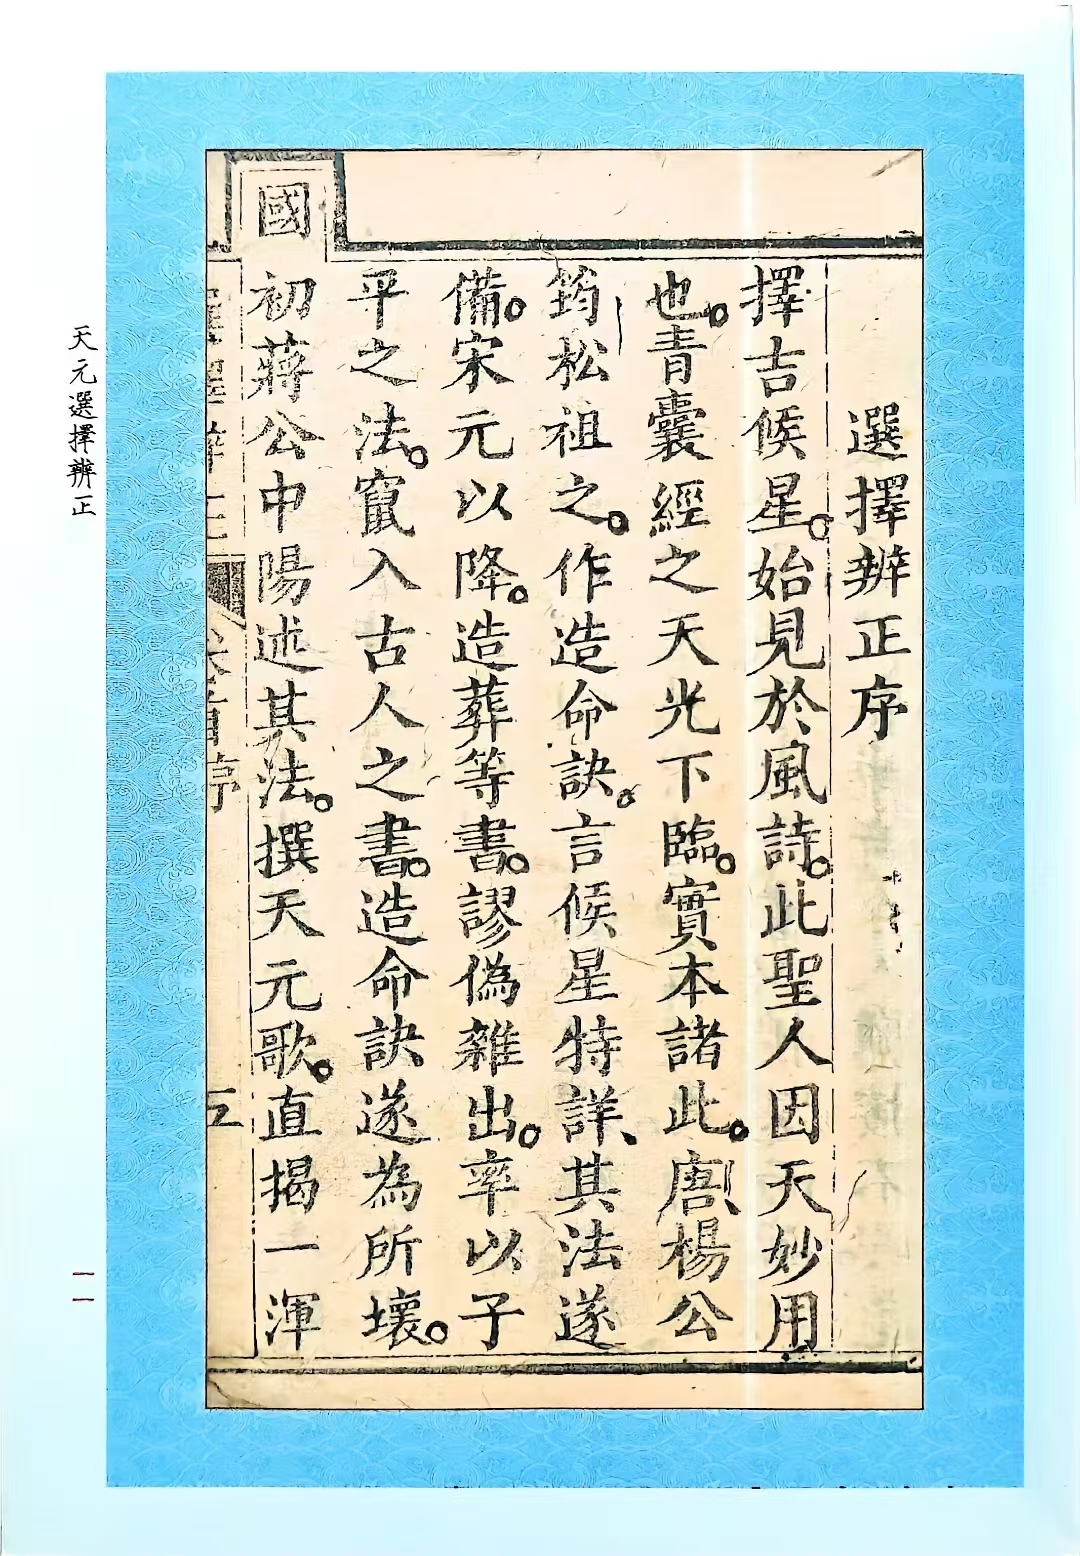 選擇辨正序
擇吉候星。始見於風詩。此聖人因天妙用
也。青囊經之天光下臨。實本諸此。唐楊公
筠松祖之。作造命訣。言候星特詳、其法遂
備。宋元以降。造葬等書。謬偽雜出。率以子
平之法。竄入古人之書。造命訣遂為所壞。
國初蔣公中陽述其法。撰天元歌。直揭一渾
選擇辨正 卷首序 五
天元選擇辨正
一一